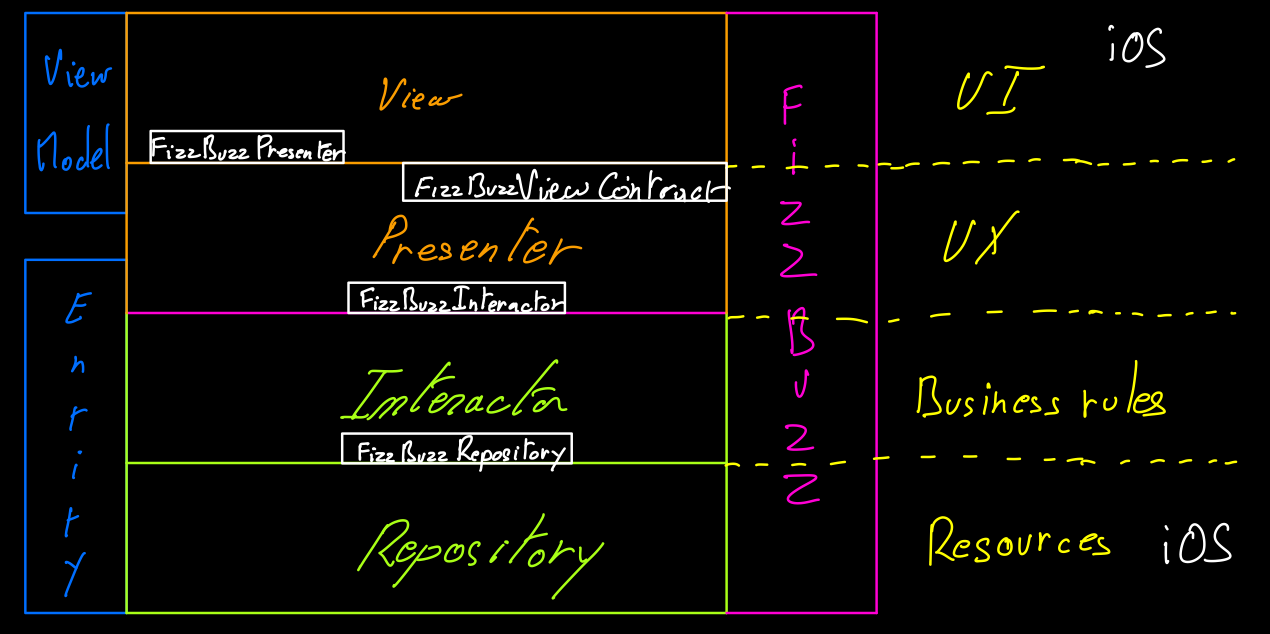 View
Model
View
FizzBuzz Presenter
FizzBuzzView Contract
Presenter
FizzBuzzInteractor
Entity
Interactor
FizzBuzz Repository
Repository
FizzBuzz
UI
iOS
UX
Business rules
Resources iOS